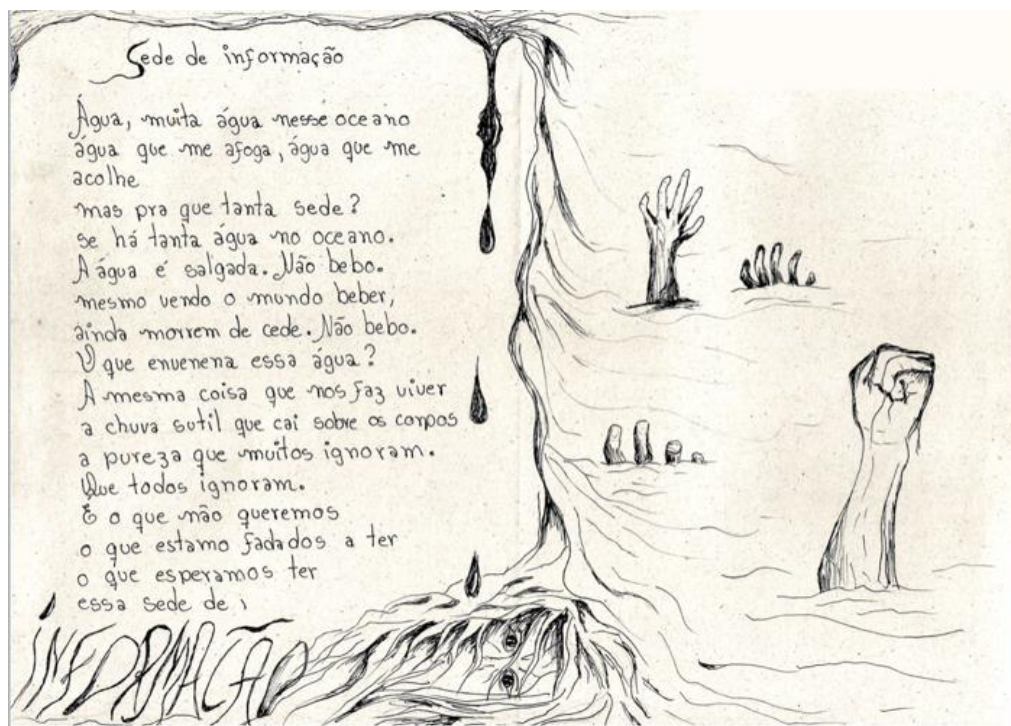 Sede de informação
Água, muita água nesse oceano
água que me afoga, água que me
acolhe
mas pra que tanta sede?
se há tanta água no oceano.
A água é salgada. Não bebo.
mesmo vendo o mundo beber,
ainda morrem de cede. Não bebo.
O que envenena essa água?
A mesma coisa que nos faz viver
a chuva sutil que cai sobre os corpos
a pureza que muitos ignoram.
Que todos ignoram.
É o que não queremos
o que estamo fadados a ter
o que esperamos ter
essa sede de i
INFORMAÇÃO